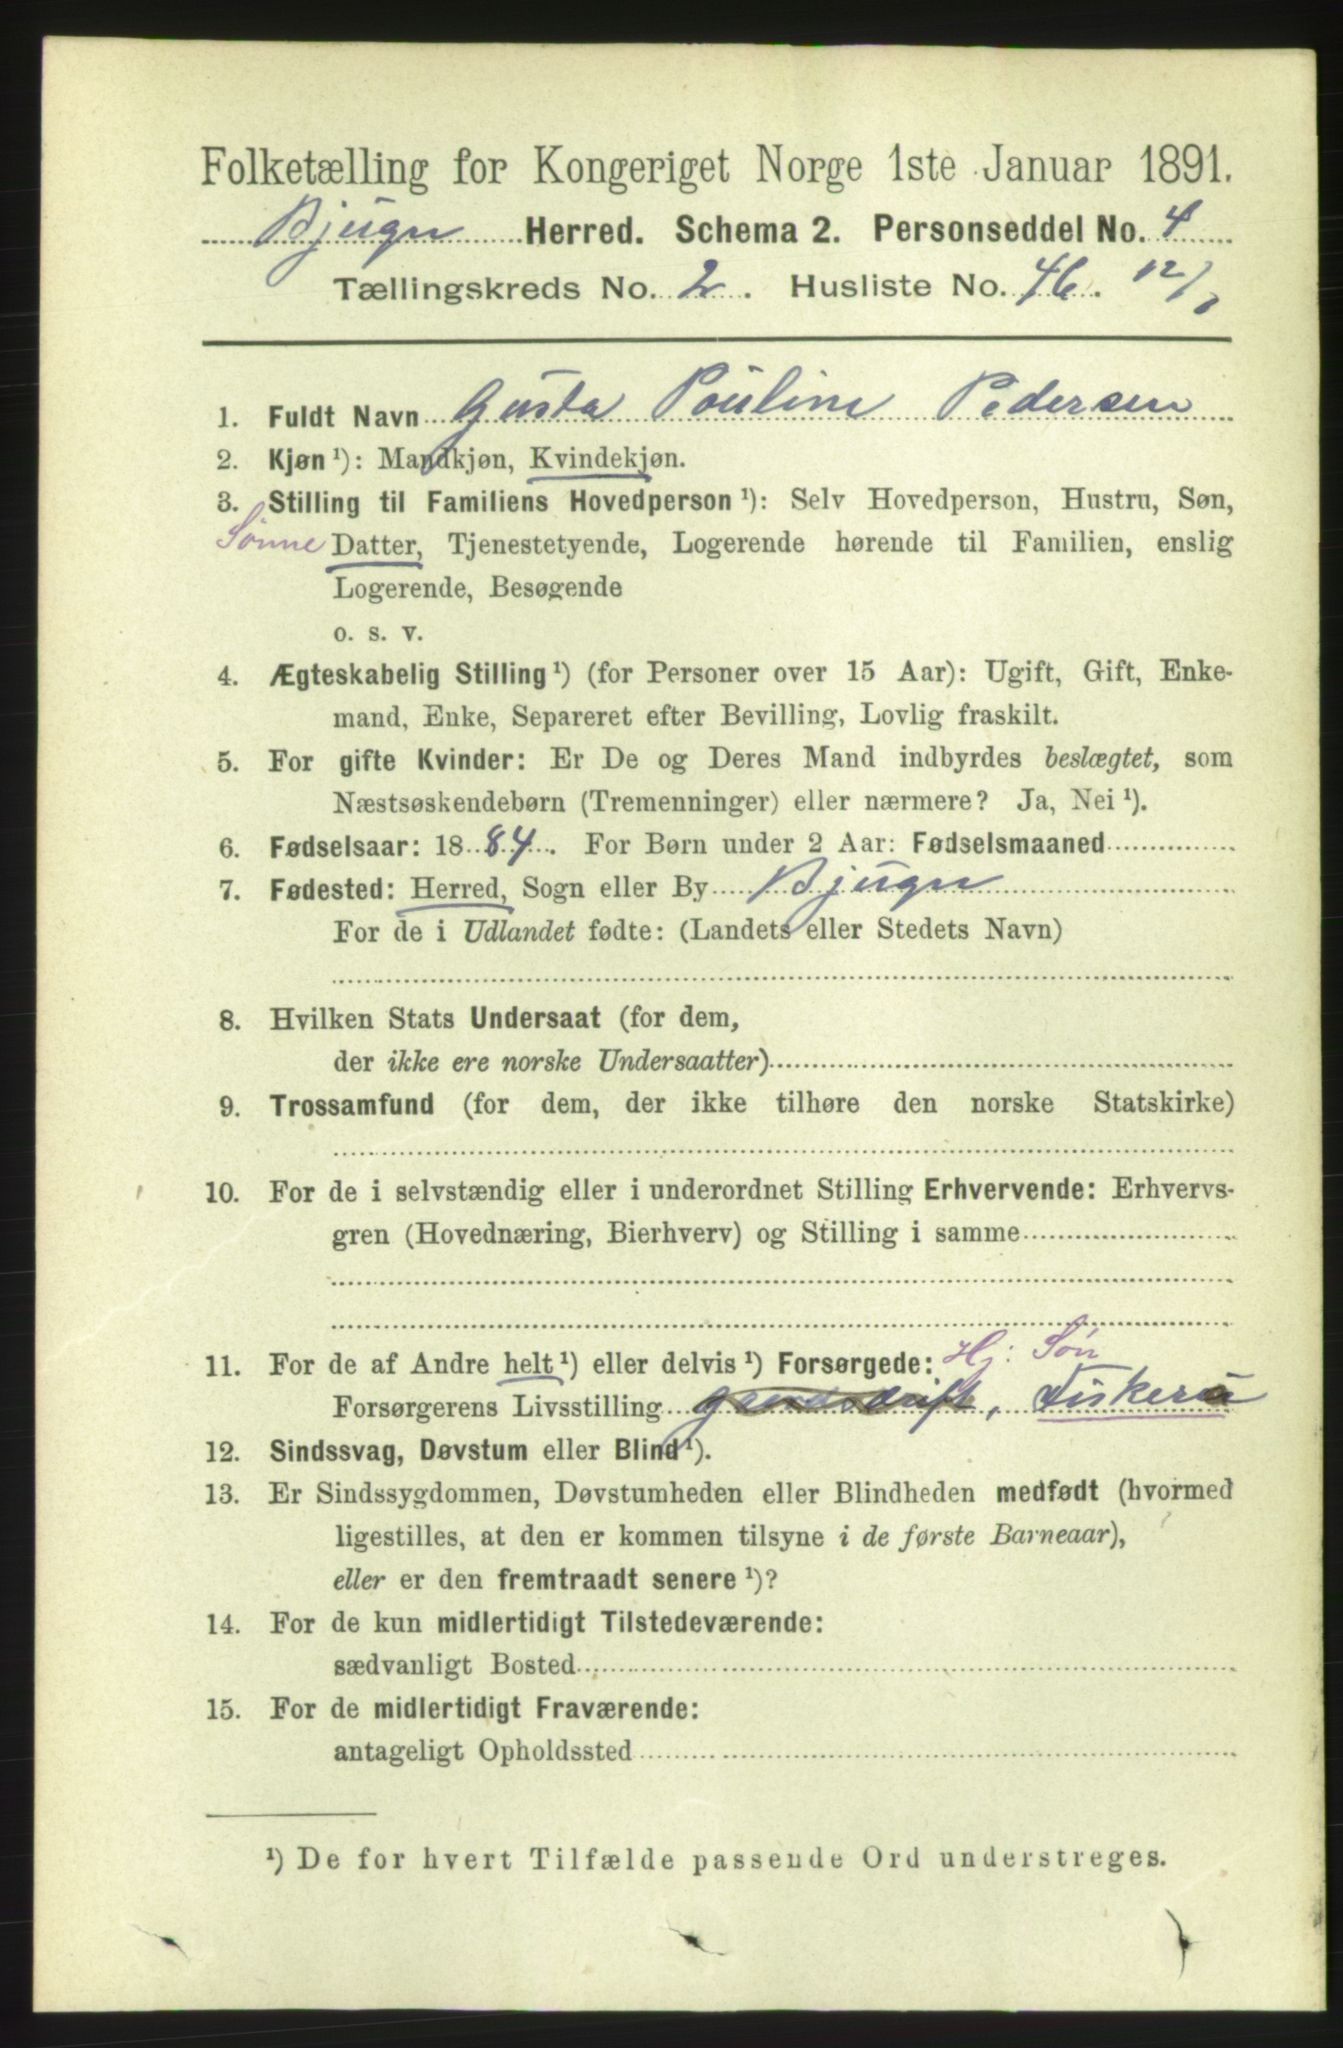 Folketælling for Kongeriget Norge 1ste Januar 1891.
Bjugn Herred. Schema 2. Personseddel No. 4
Tællingskreds No. 2. Husliste No. 46. 12/1
1. Fuldt Navn Gusta Pouline Pedersen
2. Kjøn ¹): Mandkjøn, Kvindekjøn.
3. Stilling til Familiens Hovedperson ¹): Selv Hovedperson, Hustru, Søn,
Sønne Datter, Tjenestetyende, Logerende hørende til Familien, enslig
Logerende, Besøgende
o. s. v.
4. Ægteskabelig Stilling ¹) (for Personer over 15 Aar): Ugift, Gift, Enke-
mand, Enke, Separeret efter Bevilling, Lovlig fraskilt.
5. For gifte Kvinder: Er De og Deres Mand indbyrdes beslægtet, som
Næstsøskendebørn (Tremenninger) eller nærmere? Ja, Nei ¹).
6. Fødselsaar: 1884. For Børn under 2 Aar: Fødselsmaaned
7. Fødested: Herred, Sogn eller By Bjugn
For de i Udlandet fødte: (Landets eller Stedets Navn)
8. Hvilken Stats Undersaat (for dem,
der ikke ere norske Undersaatter)
9. Trossamfund (for dem, der ikke tilhøre den norske Statskirke)
10. For de i selvstændig eller i underordnet Stilling Erhvervende: Erhvervs-
gren (Hovednæring, Bierhverv) og Stilling i samme
11. For de af Andre helt ¹) eller delvis ¹) Forsørgede: Hj: Søn
Forsørgerens Livsstilling Gaardsdrift, Fisker
12. Sindssvag, Døvstum eller Blind ¹).
13. Er Sindssygdommen, Døvstumheden eller Blindheden medfødt (hvormed
ligestilles, at den er kommen tilsyne i de første Barneaar),
eller er den fremtraadt senere ¹)?
14. For de kun midlertidigt Tilstedeværende:
sædvanligt Bosted
15. For de midlertidigt Fraværende:
antageligt Opholdssted
¹) De for hvert Tilfælde passende Ord understreges.